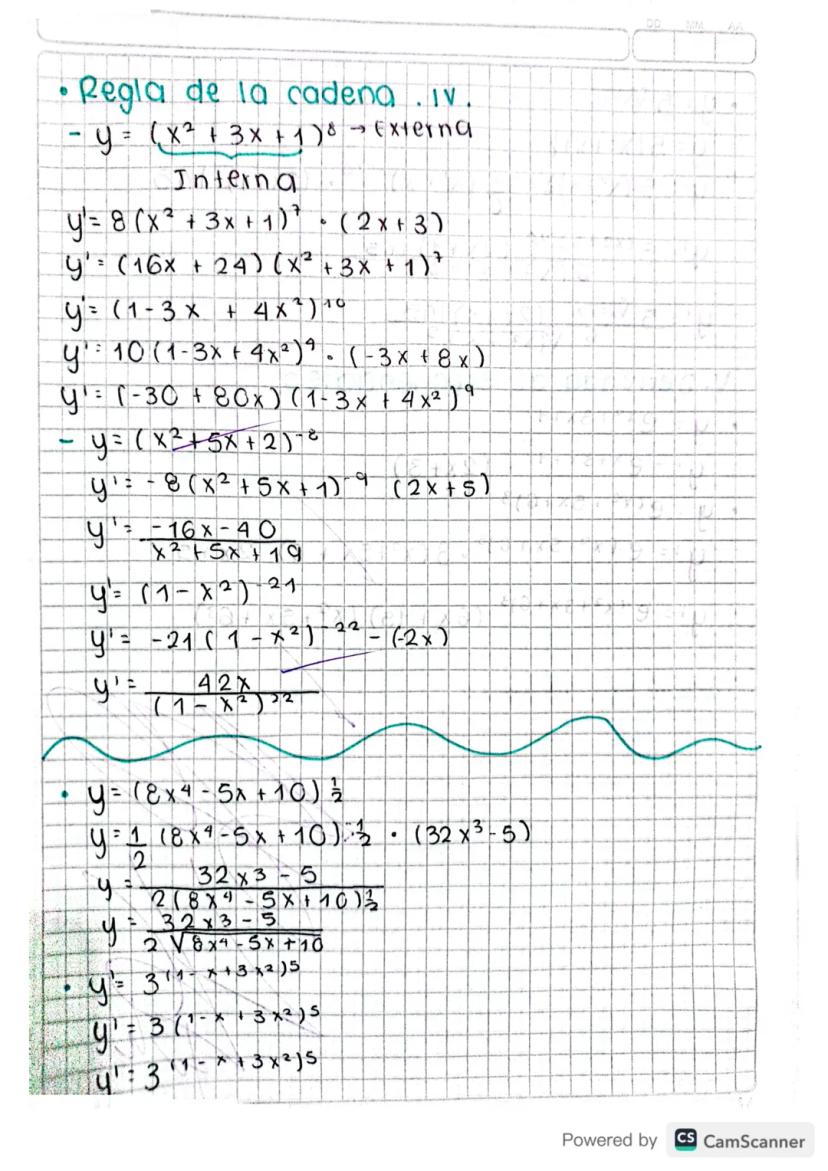 DD MM AA
• Regla de la cadena . IV.
- y = (x² + 3x + 1)⁸ → Externa
Interna
y' = 8 (x² + 3x + 1)⁷ · (2x + 3)
y' = (16x + 24) (x² + 3x + 1)⁷
y' = (1 - 3x + 4x²)¹⁰
y' = 10 (1 - 3x + 4x²)⁹ · (-3x + 8x)
y' = (-30 + 80x) (1 - 3x + 4x²)⁹
- y = (x² + 5x + 2)⁻⁸
y' = -8 (x² + 5x + 1)⁻⁹ (2x + 5)
y' = -16x - 40
x² + 5x + 19
y' = (1 - x²)⁻²¹
y' = -21 (1 - x²)⁻²² - (-2x)
y' = 42x
(1 - x²)²²
• y = (8x⁴ - 5x + 10) ½
y = 1/2 (8x⁴ - 5x + 10) -½ · (32x³ - 5)
y = 32x3 - 5
2 (8x⁴ - 5x + 10) ½
y = 32x3 - 5
2 √8x⁴ - 5x + 10
• y' = 3⁽¹ ⁻ ˣ ⁺ ³ˣ²⁾⁵
y' = 3⁽¹ ⁻ ˣ ⁺ ³ˣ²⁾⁵
y' = 3⁽¹ ⁻ ˣ ⁺ ³ˣ²⁾⁵
Powered by CS CamScanner